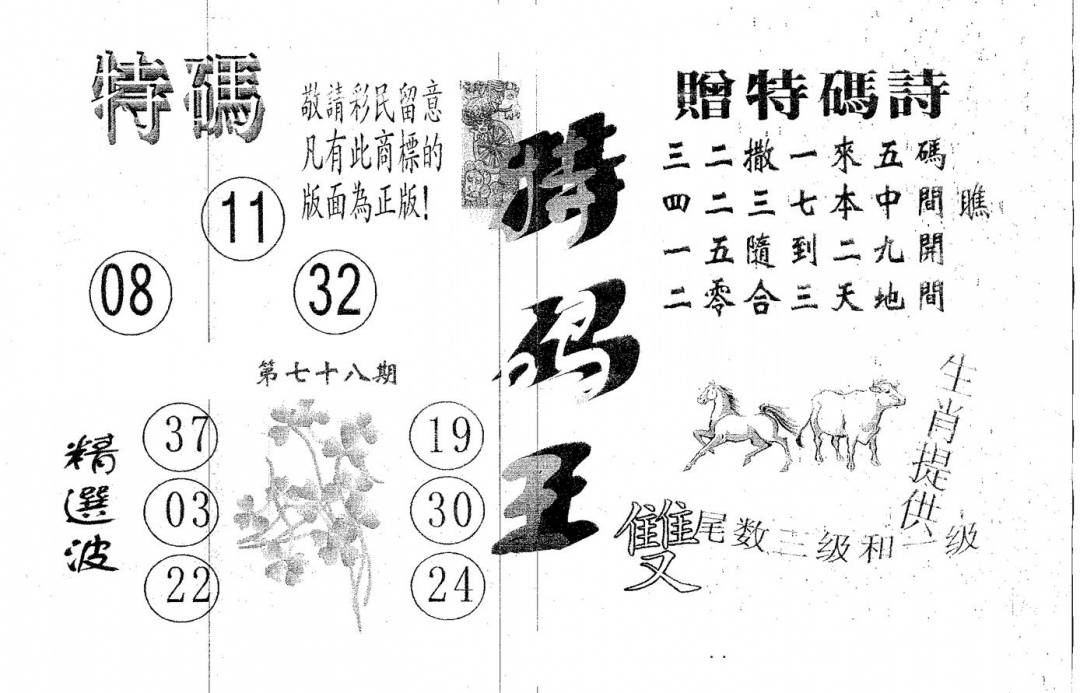 特碼
敬請彩民留意
凡有此商標的
版面為正版!
11
08
32
第七十八期
精選波
37
03
22
19
30
24
特码王
贈特碼詩
三二撒一來五碼
四二三七本中間瞧
一五隨到二九開
二零合三天地間
生肖提供
雙尾数二级和一级